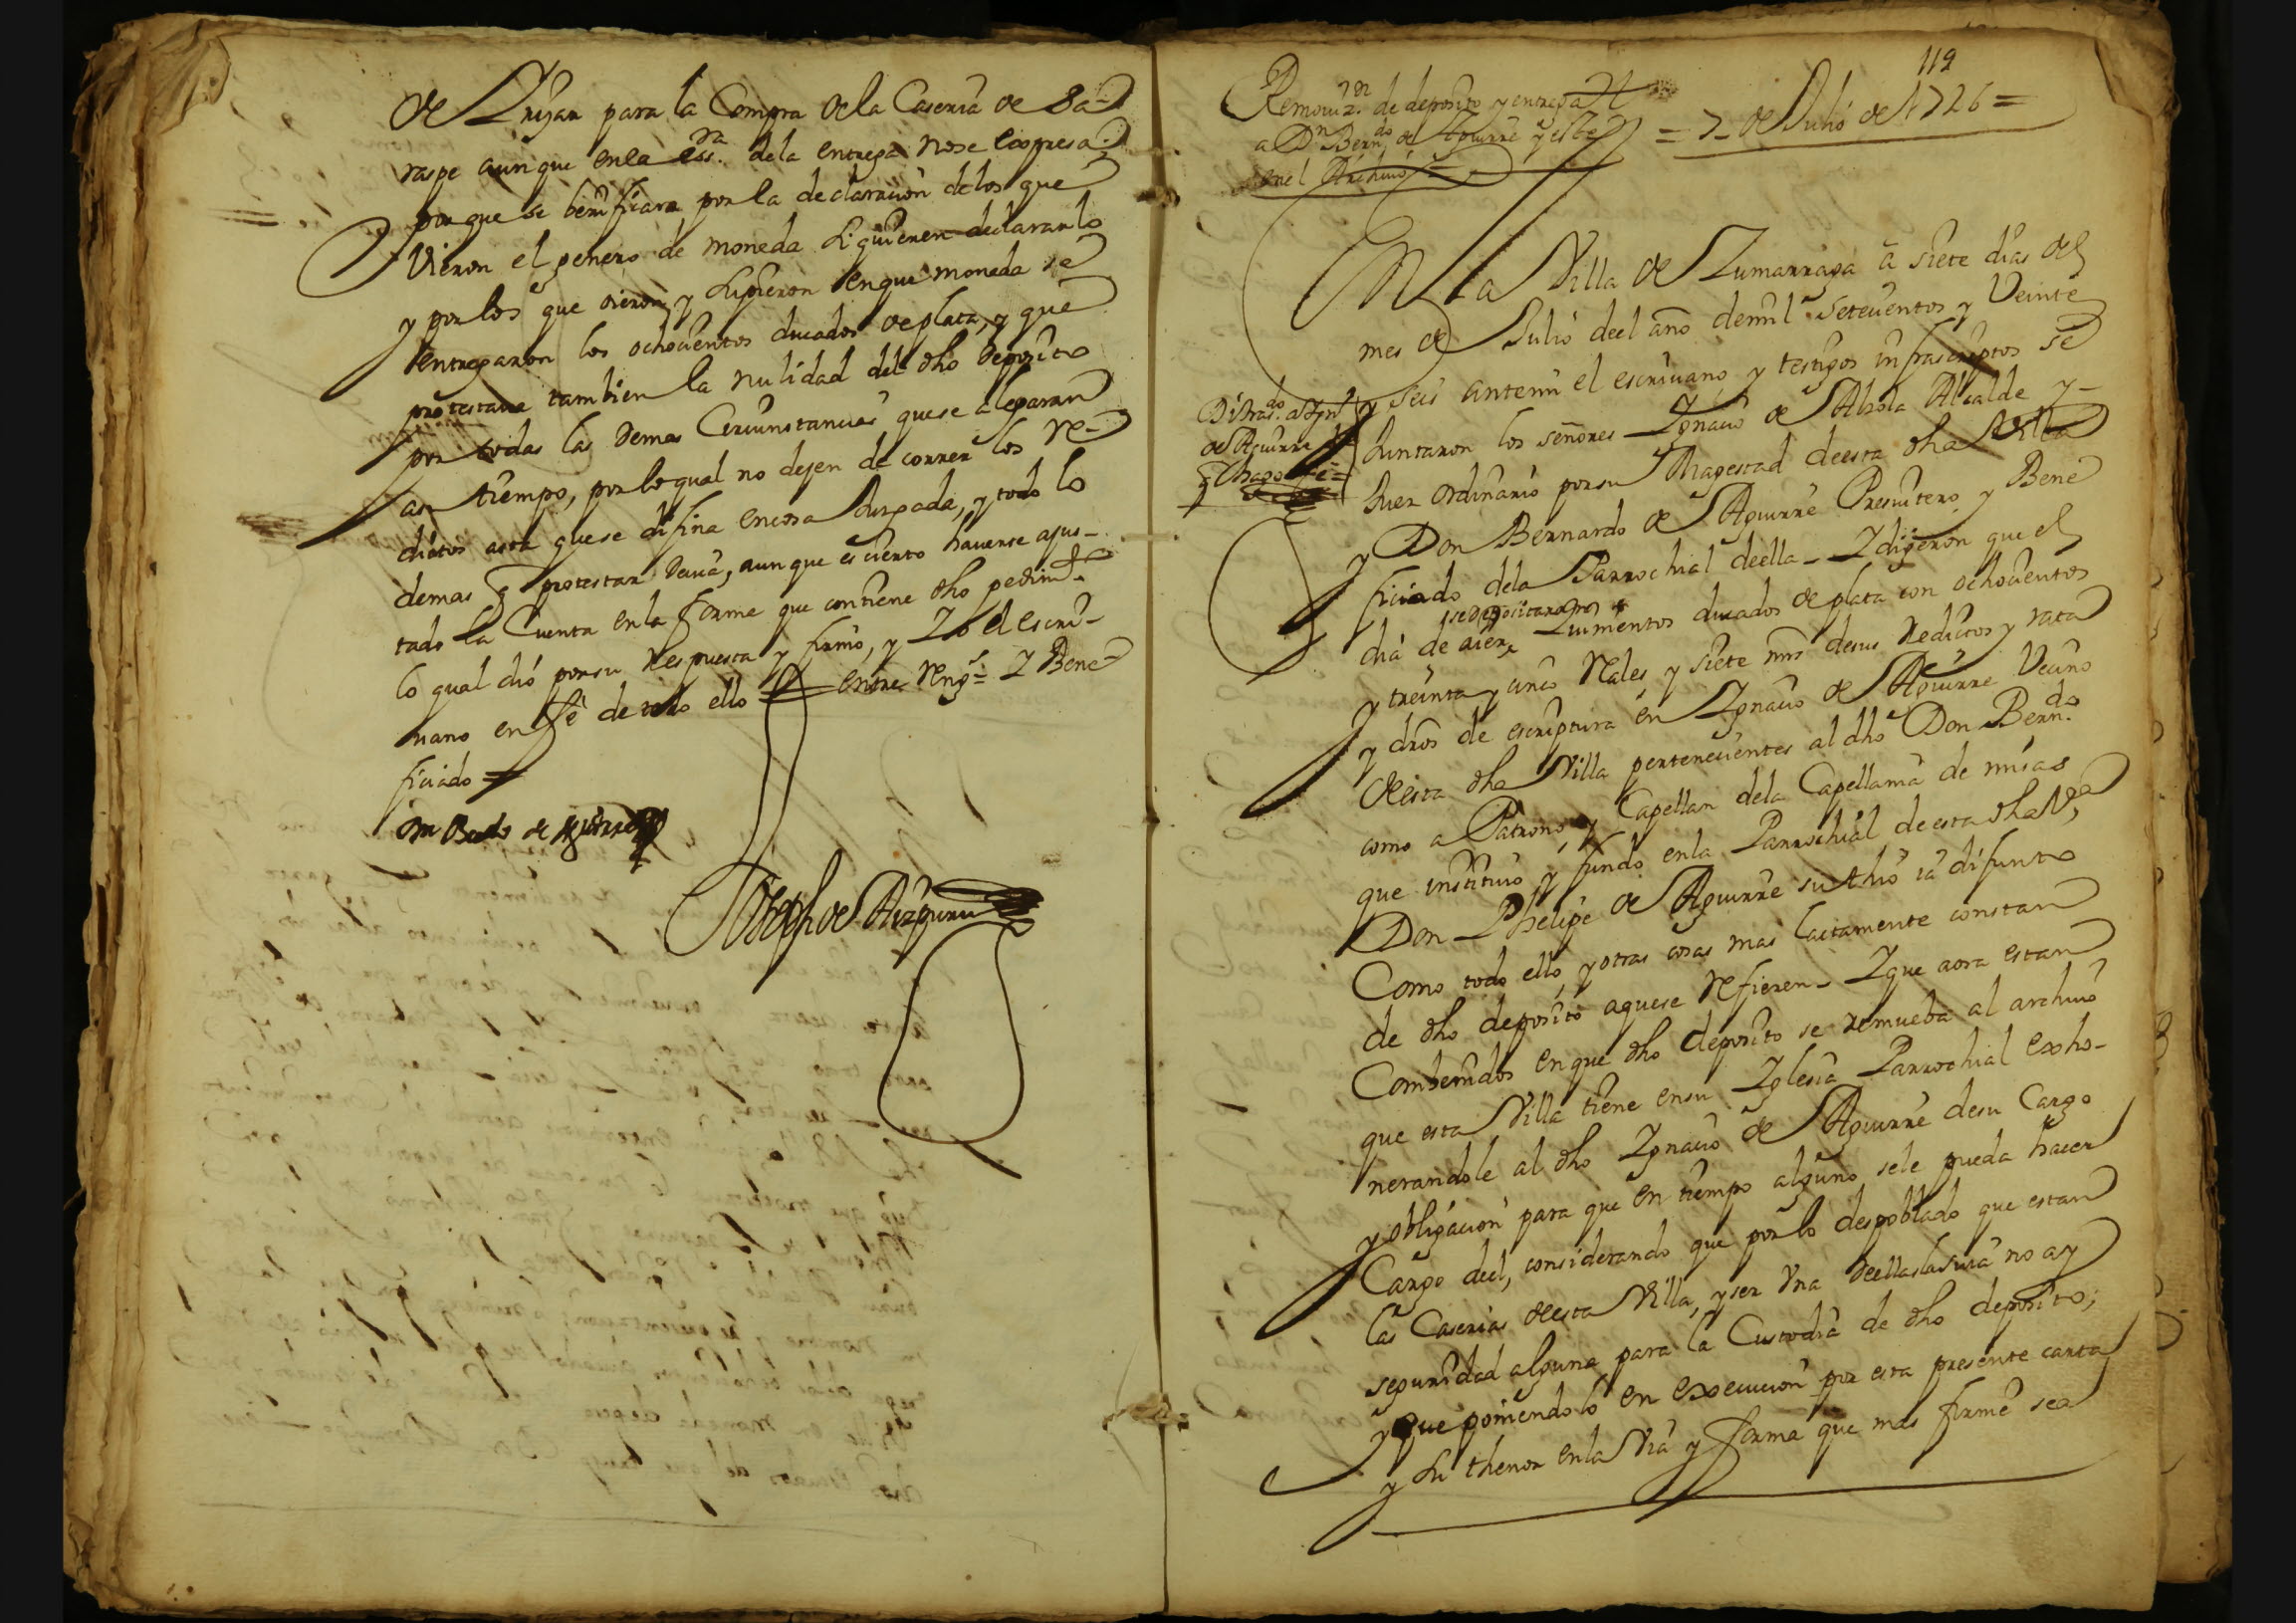 de Lrujar para la Compra dela Caseria de Sa-
raspe aunque enla ess.ra dela entrega nose expresa;
porque se berificara por la declaracion delos que
Vieron el genero de moneda si quieren declararlo
y por los que vieron, y supieron en que moneda se
entregaron los ochocientos ducados de plata, y que
protestava tambien la nulidad del dho deposito
por todas las demas Circunstancias que se alegaran
asu tiempo, por lo qual no dejen de correr los re-
ditos asta que se difina encosa Jusgada, y todo lo
demas q protestar devia, aunque es cierto haverse ajus-
tado la Cuenta en la forma que contiene dho pedimto.
lo qual dió por su respuesta y firmó, y Yo el escri-
vano en fe de todo ello = entre reng.s = Y Bene-
ficiado =
Dn Berdo de Aguirre
Joseph de Aizpuru
119
Removiz.on de deposito y entrega
a Dn Bern.do de Aguirre y está
enel Archivo =
= 7 de Julio de 1726 =
En la Villa de Zumarraga â siete dias del
mes de Julio deel año demil setecientos y Veinte
y seis antemi el escrivano y testigos infrascriptos se
Juntaron los señores Ignacio de Alzola Alcalde y
Juez ordinario por su Magestad deesta dha Villa
y Don Bernardo de Aguirre Presvitero, y Bene
ficiado dela Parrochial deella - Y dijeron que el
dia de aier se depositaron Quinientos ducados de plata con ochocientos
y treinta y cinco Reales y siete mrs desus reditos y rata
y dros de escriptura en Ignacio de Aguirre Vecino
deesta dha Villa pertenecientes al dho Don Bern.do
como a Patrono, y Capellan dela Capellania de misas
que instituio y fundo enla Parrochial de esta dha Va
Don Phelipe de Aguirre su thio ia difunto
Como todo ello, y otras cosas mas lacitamente constan
de dho deposito aque se refieren - Y que aora estan
Combenidos en que dho deposito se remueba al archivo
que esta Villa tiene en su Yglesia Parrochial exho-
nerandole al dho Ignacio de Aguirre desu Cargo
y obligacion para que en tiempo alguno sele pueda hacer
Cargo deel, considerando que por lo despoblado que estan
las Caserias deesta Villa, y ser Vna deellas la suia no ay
seguridad alguna para la Custodia de dho deposito;
y que poniendolo en execucion por esta presente carta
y su thenor enla Via y forma que mas firme sea
Di tras.do a Ign.o
de Aguirre
q hago fe =